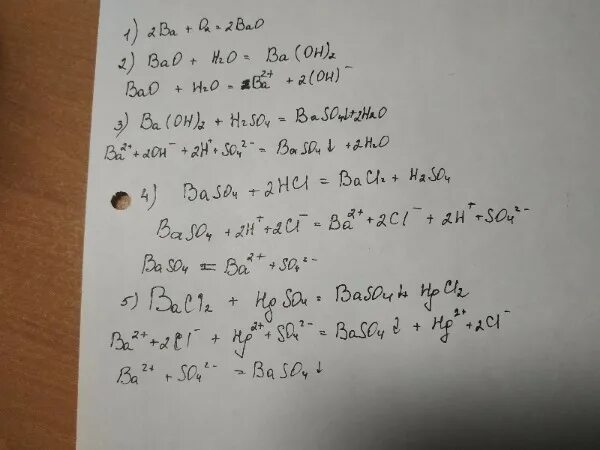 1) 2Ba + O₂ = 2BaO
2) BaO + H₂O = Ba(OH)₂
BaO + H₂O = Ba²⁺ + 2(OH)⁻
3) Ba(OH)₂ + H₂SO₄ = BaSO₄↓+2H₂O
Ba²⁺+2OH⁻ + 2H⁺+SO₄²⁻ = BaSO₄↓ +2H₂O
4) BaSO₄ + 2HCl = BaCl₂ + H₂SO₄
BaSO₄ +2H⁺+2Cl⁻ = Ba²⁺+2Cl⁻ + 2H⁺+SO₄²⁻
BaSO₄ = Ba²⁺ +SO₄²⁻
5) BaCl₂ + HgSO₄ = BaSO₄↓+ HgCl₂
Ba²⁺+2Cl⁻ + Hg²⁺+SO₄²⁻ = BaSO₄↓ + Hg²⁺+2Cl⁻
Ba²⁺ + SO₄²⁻ = BaSO₄↓